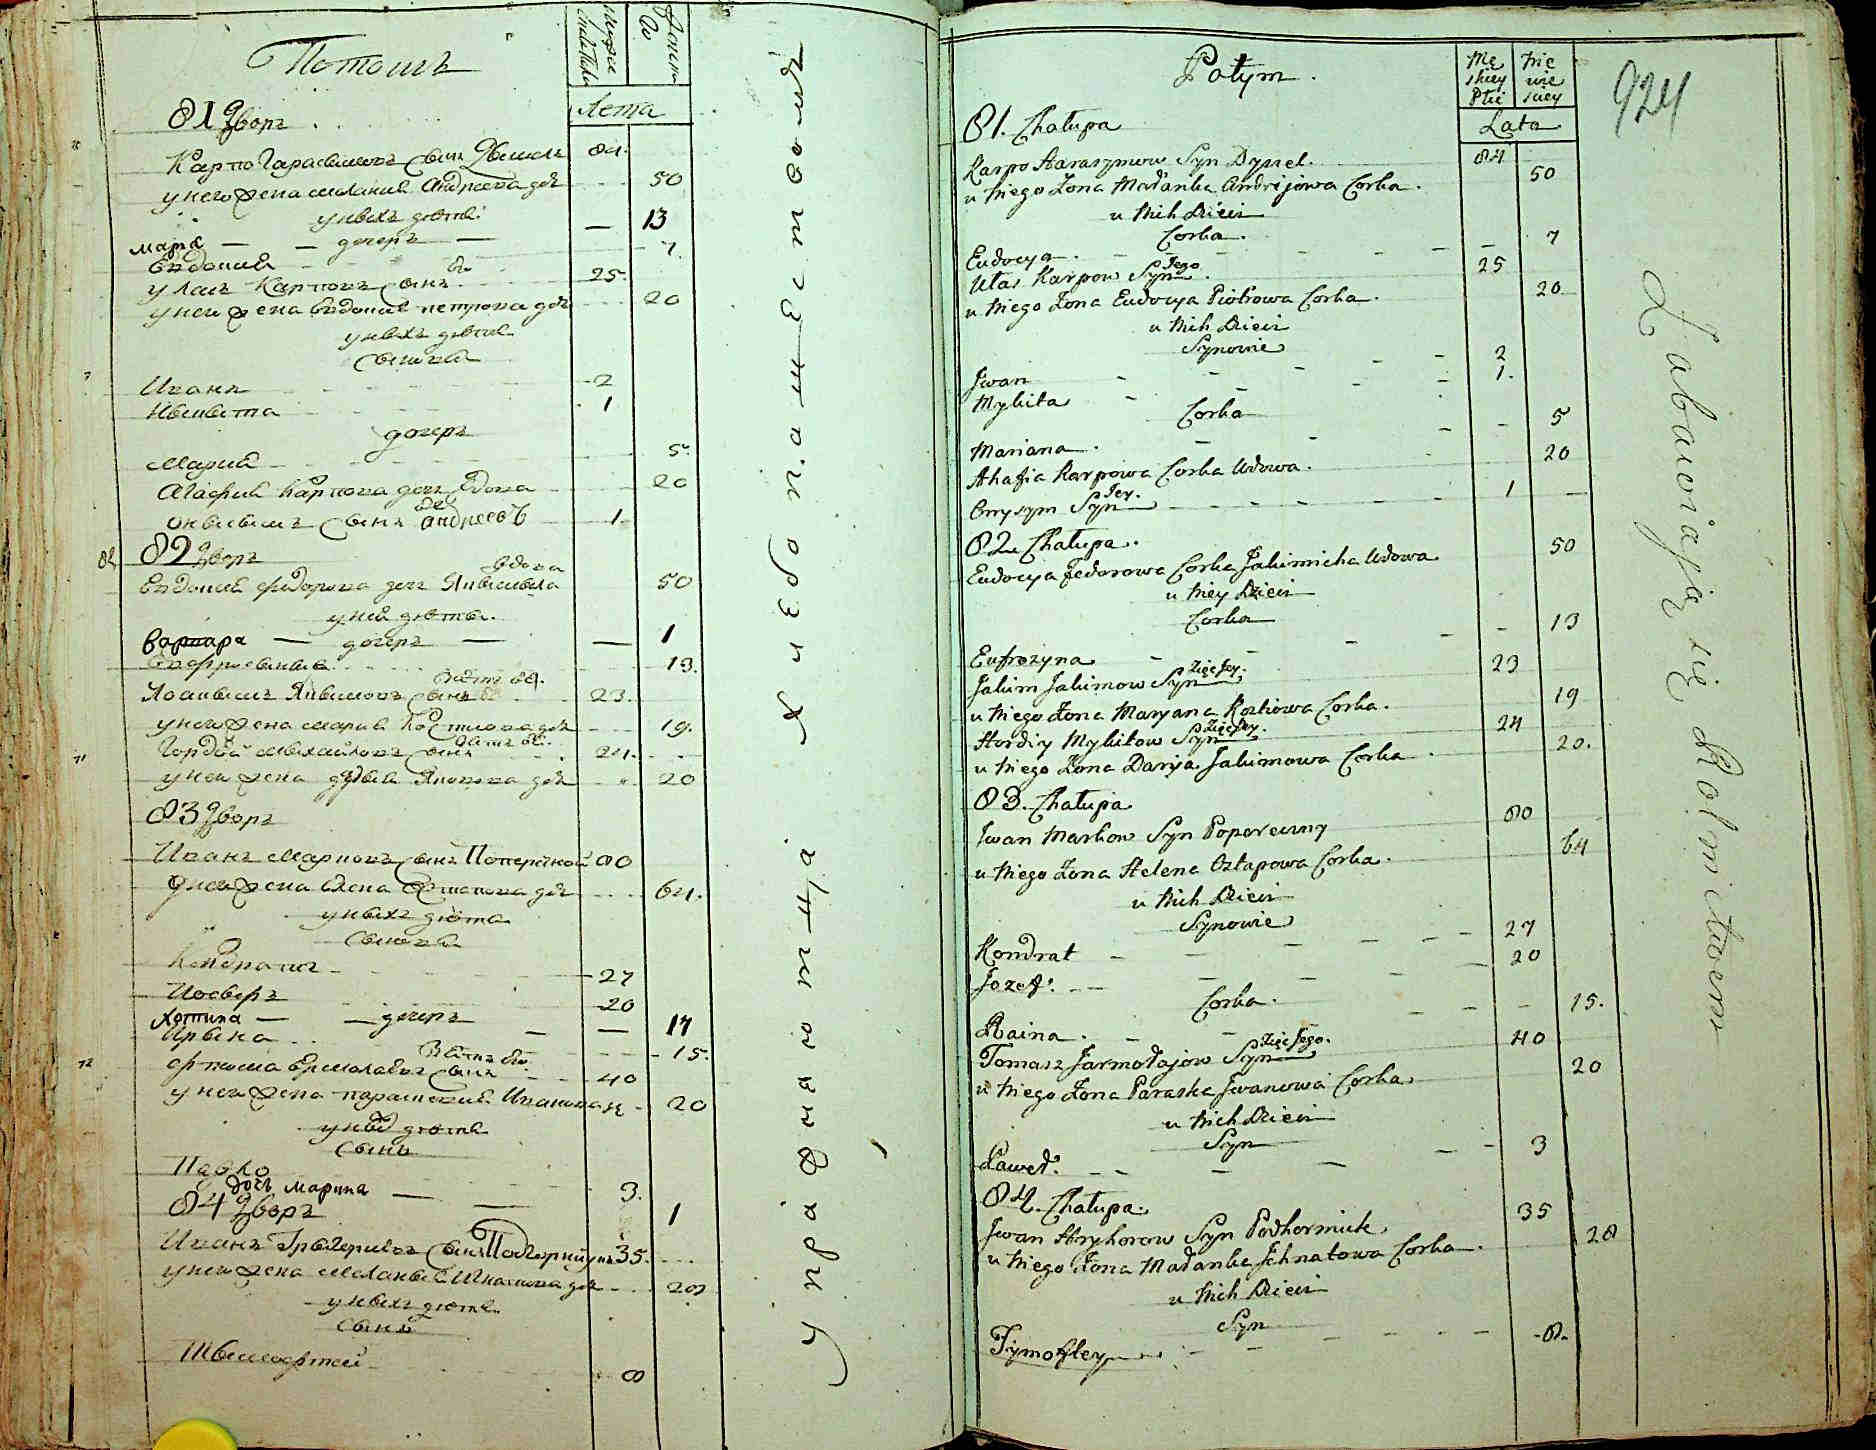 Потомъ
мужеска
Лета
81 Дворъ
Карпо Гарасимовъ сынъ 84.
у него жена Маланія Андреева дочь 50
у нихъ дети
Марѳа — дочерь — 13
Евдокия 7.
Улас Карповъ сынъ его 25.
у него жена Евдокия Петрова дочь 20
у нихъ дети
сыновья
Иванъ 2
Никита 1
дочерь
Мария 5.
Агафия Карпова дочь вдова 20
Онисимъ сынъ ея Андреевъ 1.
82 Дворъ
Евдокия Федорова дочь Якимиха вдова 50
у ней дети.
Варвара — дочерь — 1
Евфросиния 13.
Якимъ Якимовъ сынъ зять ей. 23.
у него жена Мария Костюкова дочь 19.
Гордей Михайловъ сынъ зять ей. 24.
у него жена Дарья Якимова дочь 20
83 Дворъ
Иванъ Марковъ сынъ Поперечной 80
у него жена Елена Остапова дочь 64.
у нихъ дети
сыновья
Кондратъ 27
Иосифъ 20
Хотина — дочерь — 17
Ирина 15.
Фтома Ермолаевъ сынъ зять его 40
у него жена Параскевия Иванова д 20
у них дети
сынъ
Павло 3.
дочь Марина — 1
84 Дворъ
Иванъ Григориевъ сынъ Подгорнийукъ 35.
у него жена Маланья Игнатова дочь 28
у нихъ дети
сынъ
Тимофтей 8
Хлебопашеством
упраждняютца
Potym.
Mę skiey Płci
Nie wie sciey
Lata
924
81. Chałupa
Karpo Haraszymow Syn Dyszel. 84
u Niego Żona Małanka Andrijowa Corka. 50
u Nich Dzieci
Corka.
Eudocya. 7
Ułas Karpow Syn Jego. 25
u Niego Żona Eudocya Piotrowa Corka. 20
u Nich Dzieci
Synowie
Jwan 2
Mykita 1.
Corka
Mariana. 5
Ahafia Karpowa Corka Wdowa. 20
Onysym Syn Jey. 1
82. Chałupa.
Eudocya Fedorowa Corka Jakimicha Wdowa 50
u Niey Dzieci
Corka
Eufrozyna 13
Jakim Jakimow Syn Zięć Jey. 23
u Niego Żona Maryana Kostiowa Corka. 19
Hordiy Mykitow Syn Zięć Jey. 24
u Niego Żona Darija Jakimowa Corka 20.
83. Chałupa
Jwan Markow Syn Popereczny 80
u Niego Żona Helena Ostapowa Corka. 64
u Nich Dzieci
Synowie
Kondrat 27
Jozef. 20
Corka.
Raina. 15.
Tomasz Jarmołajow Syn Zięć Jego. 40
u Niego Żona Paraska Jwanowa Corka. 20
u Nich Dzieci
Syn
Paweł. 3
84. Chałupa.
Jwan Hryhorow Syn Podhorniuk 35
u Niego Żona Małanka Jhnatowa Corka. 28
u Nich Dzieci
Syn
Tymofiey 8.
Zabawiaią się Rolnictwem